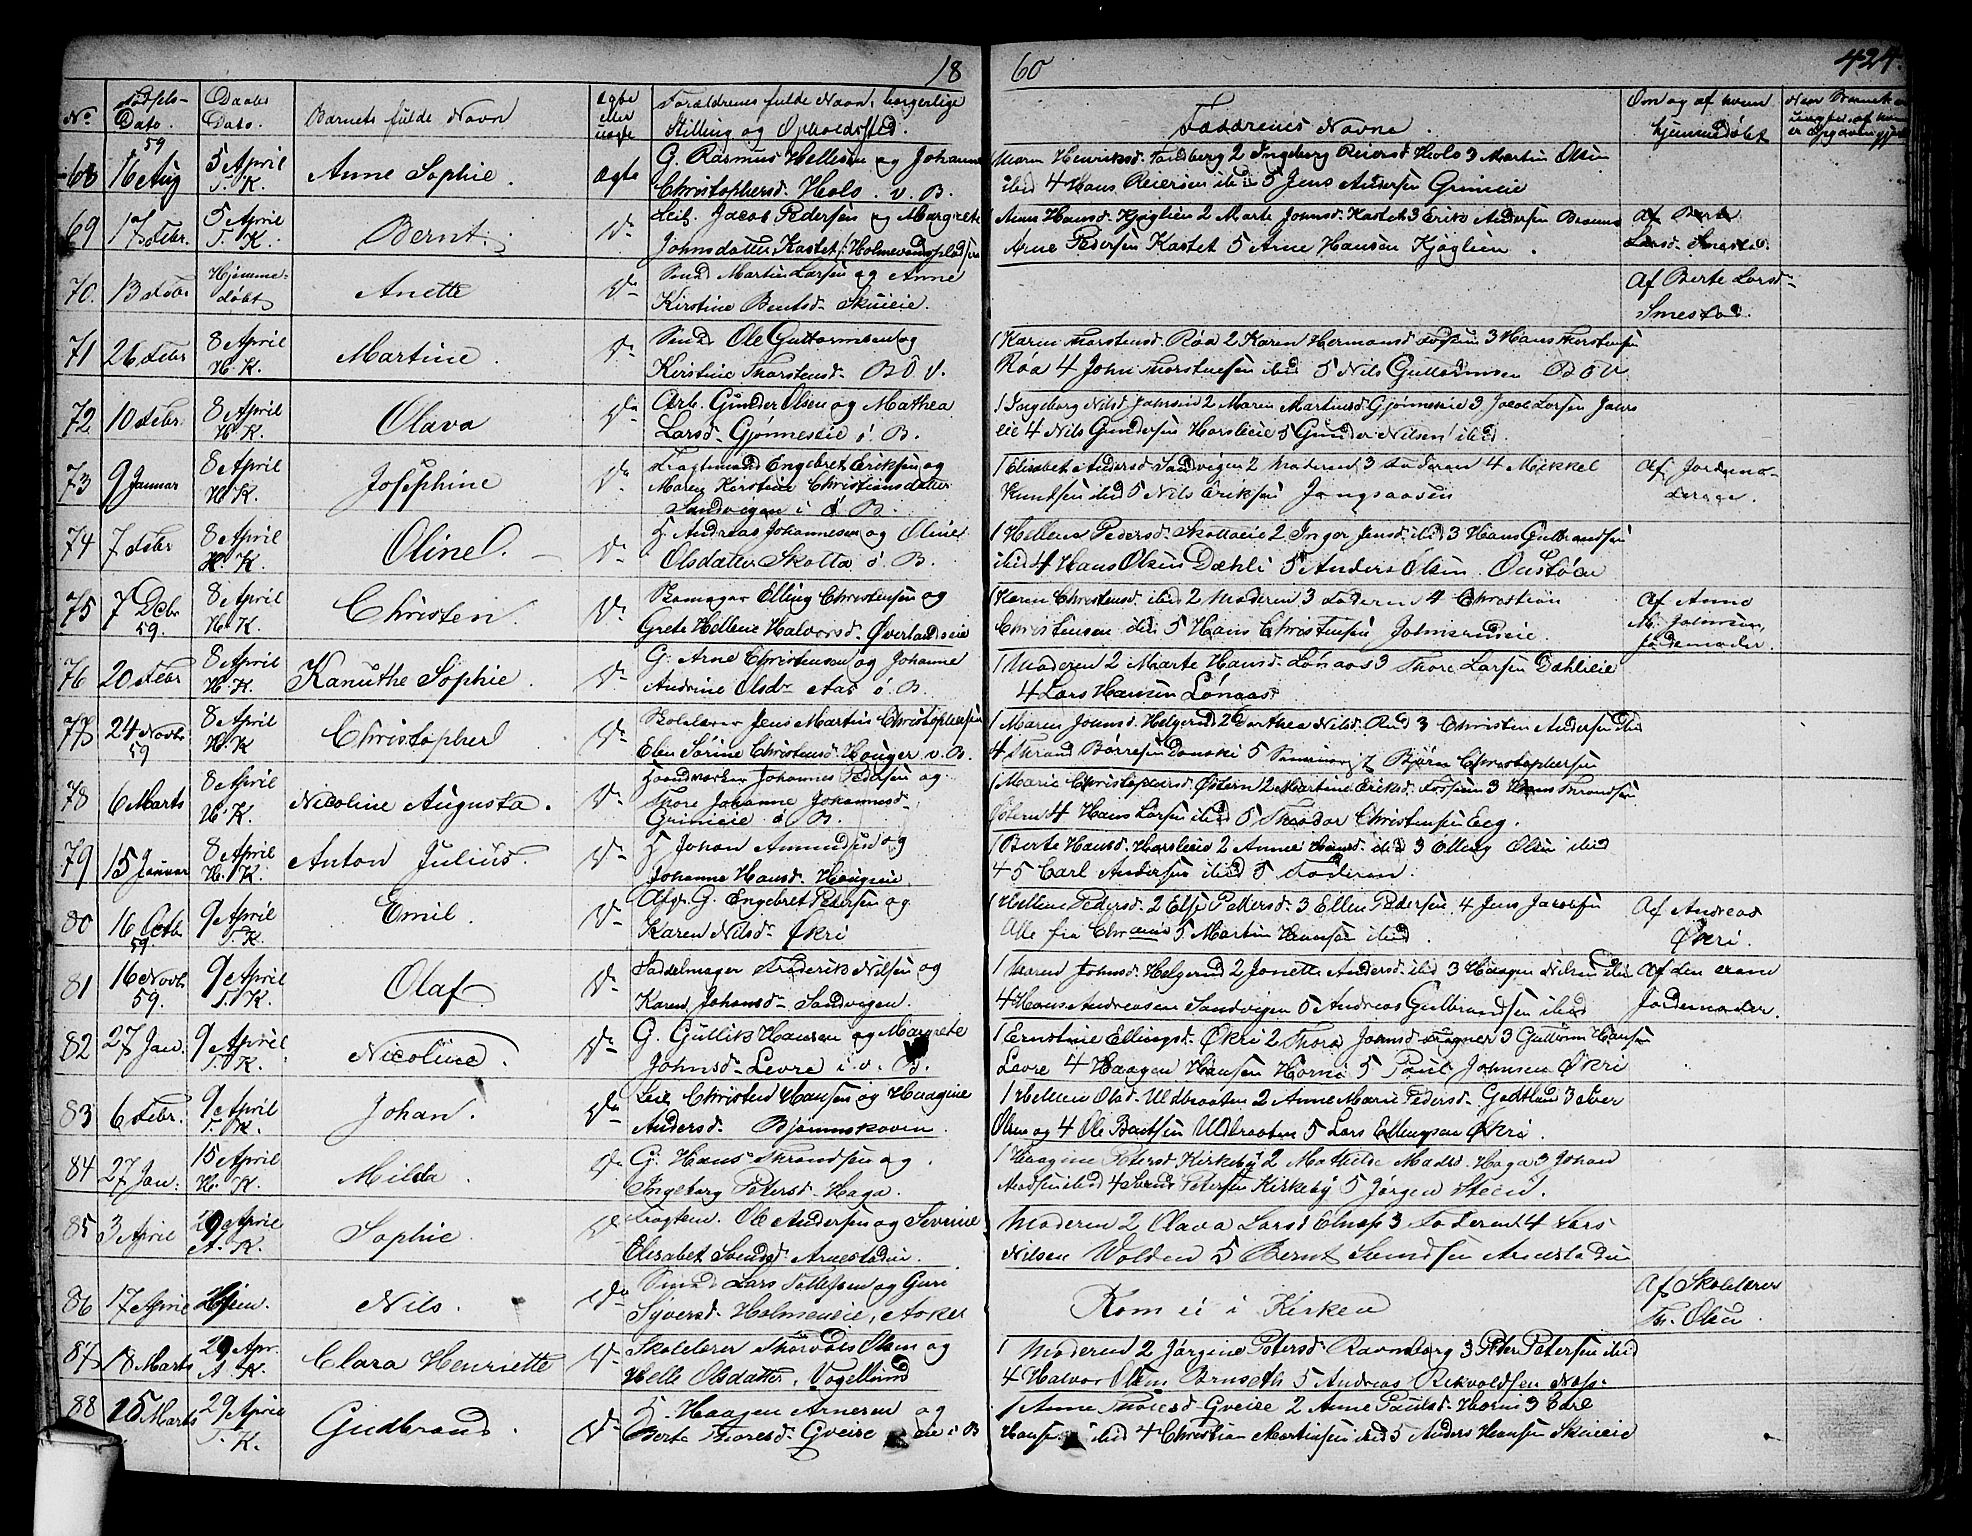 18 60
424.
No.
Fødsels-
Dato.
Daabs
Dato.
Barnets fulde Navn
Ægte
eller
uægte
Forældrenes fulde Navn, borgerlige
Stilling og Opholdssted.
Faddrenes Navne.
Om og af hvem
hjemmedøbt
59
68 16 Aug 5 April T. K. Anne Sophie. Ægte
G. Rasmus Hellesen og Johanne
Christophersd. Hols. v. B.
1 Maren Henriksd. Tandberg 2 Ingeborg Reiersd Hols 3 Martin Olsen
ibid 4 Hans Reiersen ibid 5 Jens Andersen Grinieie
69 17 Febr. 5 April T. K. Bernt. Do
Leil. Jacob Pedersen og Margrete
Johnsdatter Kastet, Holmeneplads
1 Anne Hansd. Kjøglien 2 Marte Johnsd. Kastet 3 Erik Andersen
Arne Pedersen Kastet 5 Arne Hansen Kjøglien.
Af Berte
Larsd. Smestad.
70. 13 Febr Hjemme-
døbt Anette Do
Smed Martin Larsen og Anne
Kirstine Berntsd. Skuieie.
Af Berte Larsd-
Smestad.
71 26 Febr 8 April H. K. Martine. Do
Smed Ole Guttormsen og
Kirstine Thorstensd. B Ø V.
1 Karen Thorstensd. Røa 2 Karen Hermansd 3 Hans Thorstensen
Røa 4 John Thorstensen ibid 5 Nils Guttormsen B Ø V
72 10 Febr. 8 April H. K. Olava Do
Arb. Gunder Olsen og Mathea
Larsd. Gjønneseie ø. B.
1 Ingeborg Nilsd 2 Maren Martinsd Gjønneseie 3 Jacob Larsen
eie 4 Nils Gundersen Horsleeie 5 Gunder Nilsen ibid.
73 9 Januar 8 April H. K. Josephine Do
Fragtemand Engebret Eriksen og
Maren Kirstine Christiansdatter
Sandvigen i ø B.
1 Elisabet Andersd. Sandvigen 2 Moderen 3 Faderen 4 Mikkel
Knudsen ibid 5 Nils Eriksen Jongsaasen
Af Jordemo-
deren.
74 7 Febr 8 April H. K. Oline. Do
H. Andreas Johannesen og Oline
Olsdatter Skotta ø. B.
1 Hellene Pedersd. Skottaeie 2 Inger Jensd. ibid 3 Hans Gulbrandsen
ibid 4 Hans Olsen Dæhli 5 Anders Olsen Oustøen
75 7 Decbr 59. 8 April H. K. Christen. Do
Skomager Elling Christensen og
Grete Hellene Halvorsd. Øverlandseie
1 Karen Christensd. ibid 2 Moderen 3 Faderen 4 Christian
Christensen ibid 5 Hans Christensen
Af Anne
M. Johnsen,
Jordemoder.
76 20 Febr 8 April H. K. Kanuthe Sophie. Do
G. Arne Christensen og Johanne
Andrine Olsdr Aas ø. B.
1 Moderen 2 Marte Hansd. Lønaas 3 Thore Larsen Dæhlieie
4 Lars Hansen Lønaas.
77 24 Novbr 59 8 April H. K Christopher Do
Skolelærer Jens Martin Christophersen
Elen Sørine Christensd. Houger v. B.
1 Maren Johnsd. Helgerud 2 Dorthea Nilsd. Rud 3 Christen Andersen ibid
4 Thrond Børresen Donski 5 Seminarist Bjørn Christophersen
78 6 Marts 8 April H. K. Nicoline Augusta. Do
Haandværker Johannes Pedersen og
Thore Johanne Johannesd.
Grinieie ø B.
1 Marie Christophersd. Østern 2 Martine Eriksd. Fossum 3 Hans Throndsen
Østern 4 Hans Larsen ibid 5 Theodor Christensen Eeg.
79 15 Januar 8 April H. K. Anton Julius. Do
H Johan Amundsen og
Johanne Hansd. Haugeie
1 Berte Hansd. Horsleeie 2 Anne Hansd. ibid 3 Elling Olsen ibid
4 5 Carl Andersen ibid 5 Faderen.
80 16 Octbr 59 9 April T. K. Emil. Do
Afgr G. Engebret Pedersen og
Karen Nilsd. Økri
1 Hellene Pedersd. 2 Else Pettersd. 3 Ellen Pedersen 4 Jens Jacobsen
Alle fra 5 Martin Hansen ibid.
Af Andreas
Økri.
81 16 Novbr 59. 9 April T. K. Olaf Do
Saddelmager Frederik Nilsen og
Karen Johansd. Sandvigen.
1 Maren Johnsd. Helgerud 2 Jonette Andersd. ibid 3 Haagen Nilsen ibid
4 Hans Andreasen Sandvigen 5 Andreas Gulbrandsen ibid
Af den
Jordemoder.
82 27 Jan. 9 April T. K. Nicoline. Do
G. Gullik Hansen og Margrete
Johnsd. Levre i v. B.
1 Ernstine Ellingsd. Økri 2 Thora Johnsd. Fogner 3 Guttorm Hansen
Levre 4 Haagen Hansen Horni 5 Poul Johnsen Økri
83 6 Febr. 9 April T. K. Johan. Do
Leil. Christen Hansen og Haagine
Andersd. Bjørumskoven
1 Hellene Olsd. Uldbraaten 2 Anne Marie Pedersd. 3 Iver
Olsen og 4 Ole Berntsen Uldbraaten 5 Lars Ellingsen Økri.
84 27 Jan. 15 April H. K. Milda. Do
G. Hans Throndsen og
Ingeborg Petersd. Haga.
1 Haagine Petersd Kirkeby 2 Mathilde Madsd. Haga 3 Johan
Madsen ibid 4 Petersen Kirkeby 5 Jørgen Steen.
85 3 April 29 April A. K. Sophie. Do
Fragtem. Ole Andersen og Severine
Elisabet Arnestadeie.
Moderen 2 Olava Larsd. 3 Faderen 4 Lars
Nilsen Volden 5 Bernt Arnestadeie
86 17 April Hjem. Nils. Do
Smed Lars Tollefsen og Guri
Syversd. Holmeneie, Asker
Kom ei i Kirken
Af Skolelærer
Th. Olsen
87 18 Marts 29 Apr. A. K. Clara Henriette Do
Skolelærer Thorvald Olsen og
Helle Olsdatter, Vogellund
1 Moderen 2 Jørgine Petersd. Ravnsborg 3 Peder Petersen ibid
4 Halvor Olsen Bruseth 5 Andreas Rikvoldsen Næs.
88 25 Marts 29 April T. K. Gudbrand Do
H. Haagen Arnesen og
Berte Thoresd. Gveise eie i B
1 Anne Thoresd Gveise 2 Anne Paulsd. Horni 3 Edle
Hansen ibid 4 Christian Martinsen ibid 5 Anders Hansen Skuieie